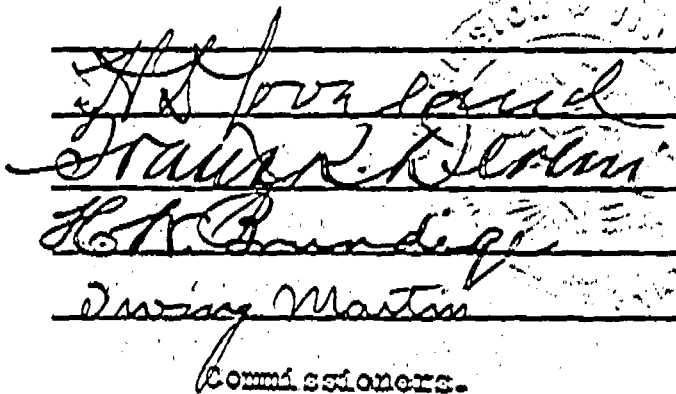 H D Loveland
Frank R. Devlin
H. W. Brundige
Irving Martin
Commissioners.